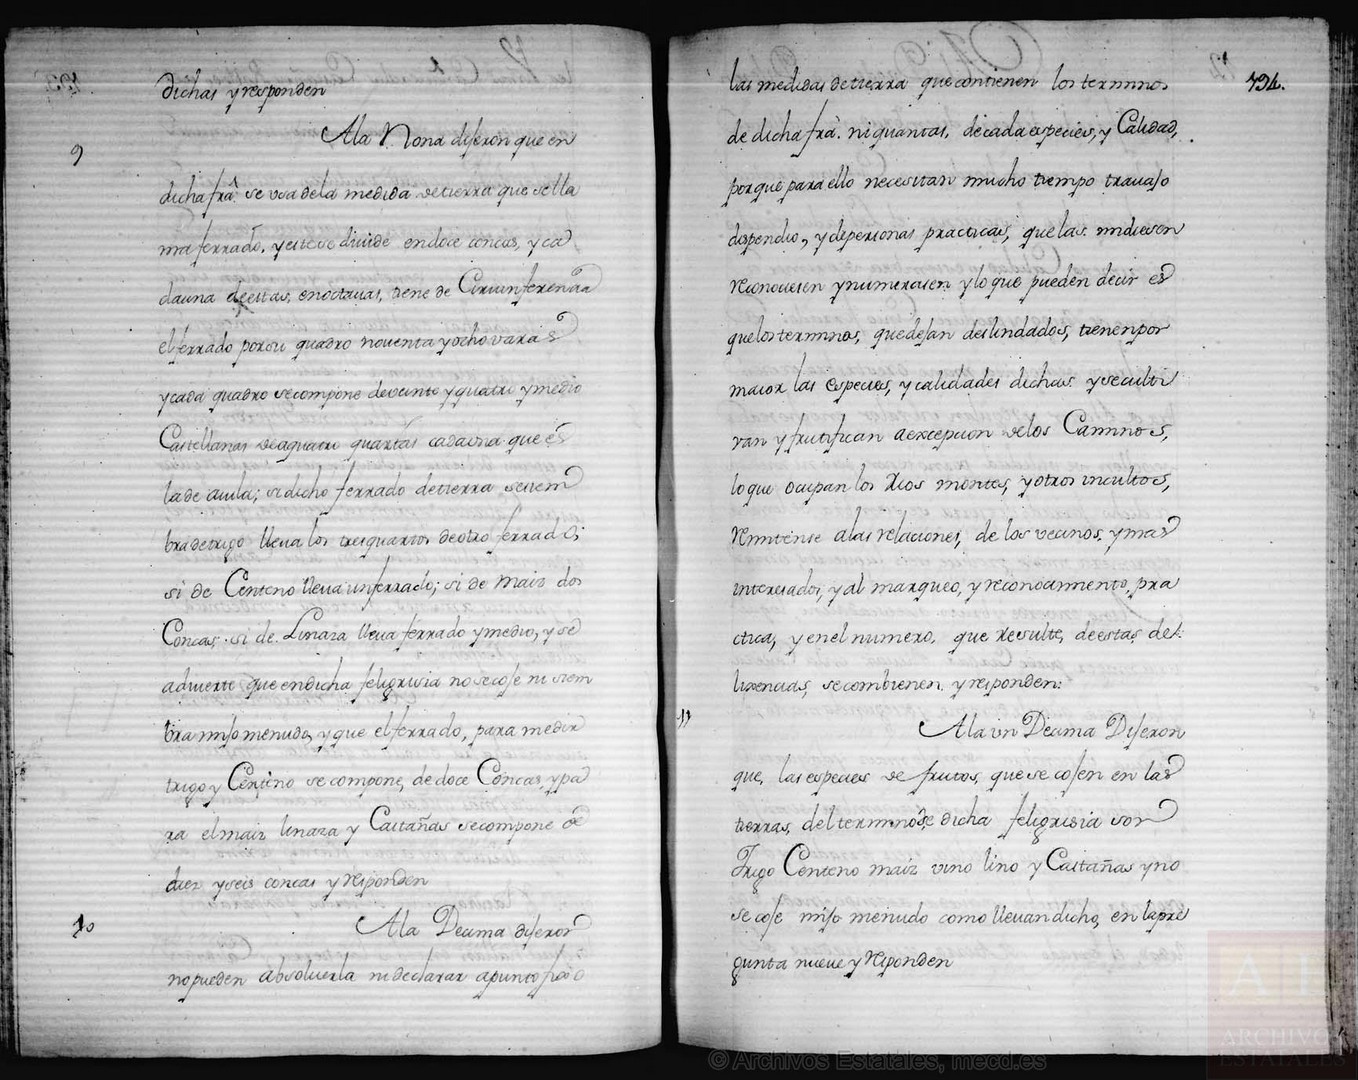 dichas y responden
9
Ala Nona dijeron que en
dicha frâ. se usa dela medida de tierra que se lla
ma ferrado, y este se divide en doce concas, y ca
dauna de estas, en octauas, tiene de Circunferencia
el ferrado por su quadro noventa y ocho varas
y cada quadro se compone de veinte y quatro y medio
Castellanas de a quatro quartas cada una que es
la de auila; si dicho ferrado de tierra se siem
bra de trigo lleua los tres quartos de otro ferrado;
si de Centeno lleua un ferrado; si de maiz dos
Concas; si de Linaza lleua ferrado y medio, y se
aduierte que en dicha feligrisia no se coje ni siem
bra mijo menudo, y que el ferrado, para medir
trigo y Centeno se compone, de doce Concas, y pa
ra el maiz linaza y Castañas se compone de
diez y seis concas y responden
10
Ala Decima dijeron
no pueden absoluerla ni declarar a punto fixo
794.
las medidas de tierra que contienen los terminos
de dicha frâ. ni quantas, de cada especies, y Calidad,
porque para ello necesitan mucho tiempo trauajo
dispendio, y de personas practicas, que las midiesen
reconociesen y numerasen y lo que pueden decir es
que los terminos, que dejan deslindados, tienen por
maior las especies, y calidades dichas y se culti
van y frutifican a excepcion de los Caminos,
lo que ocupan los Rios montes, y otros incultos,
remitense a las relaciones, de los vecinos, y mas
interesados, y al marqueo, y reconocimiento, pra
ctica, y en el numero, que Resulte, de estas de
lixencias, se combienen y responden:
11
Ala un Decima Dijeron
que, las especies de frutos, que se cojen en las
tierras, del termino de dicha feligrisia son
Trigo Centeno maiz vino lino y Castañas y no
se coje mijo menudo como lleuan dicho, en la pre
gunta nueue y responden
© Archivos Estatales, mecd.es
ARCHIVOS
ESTATALES